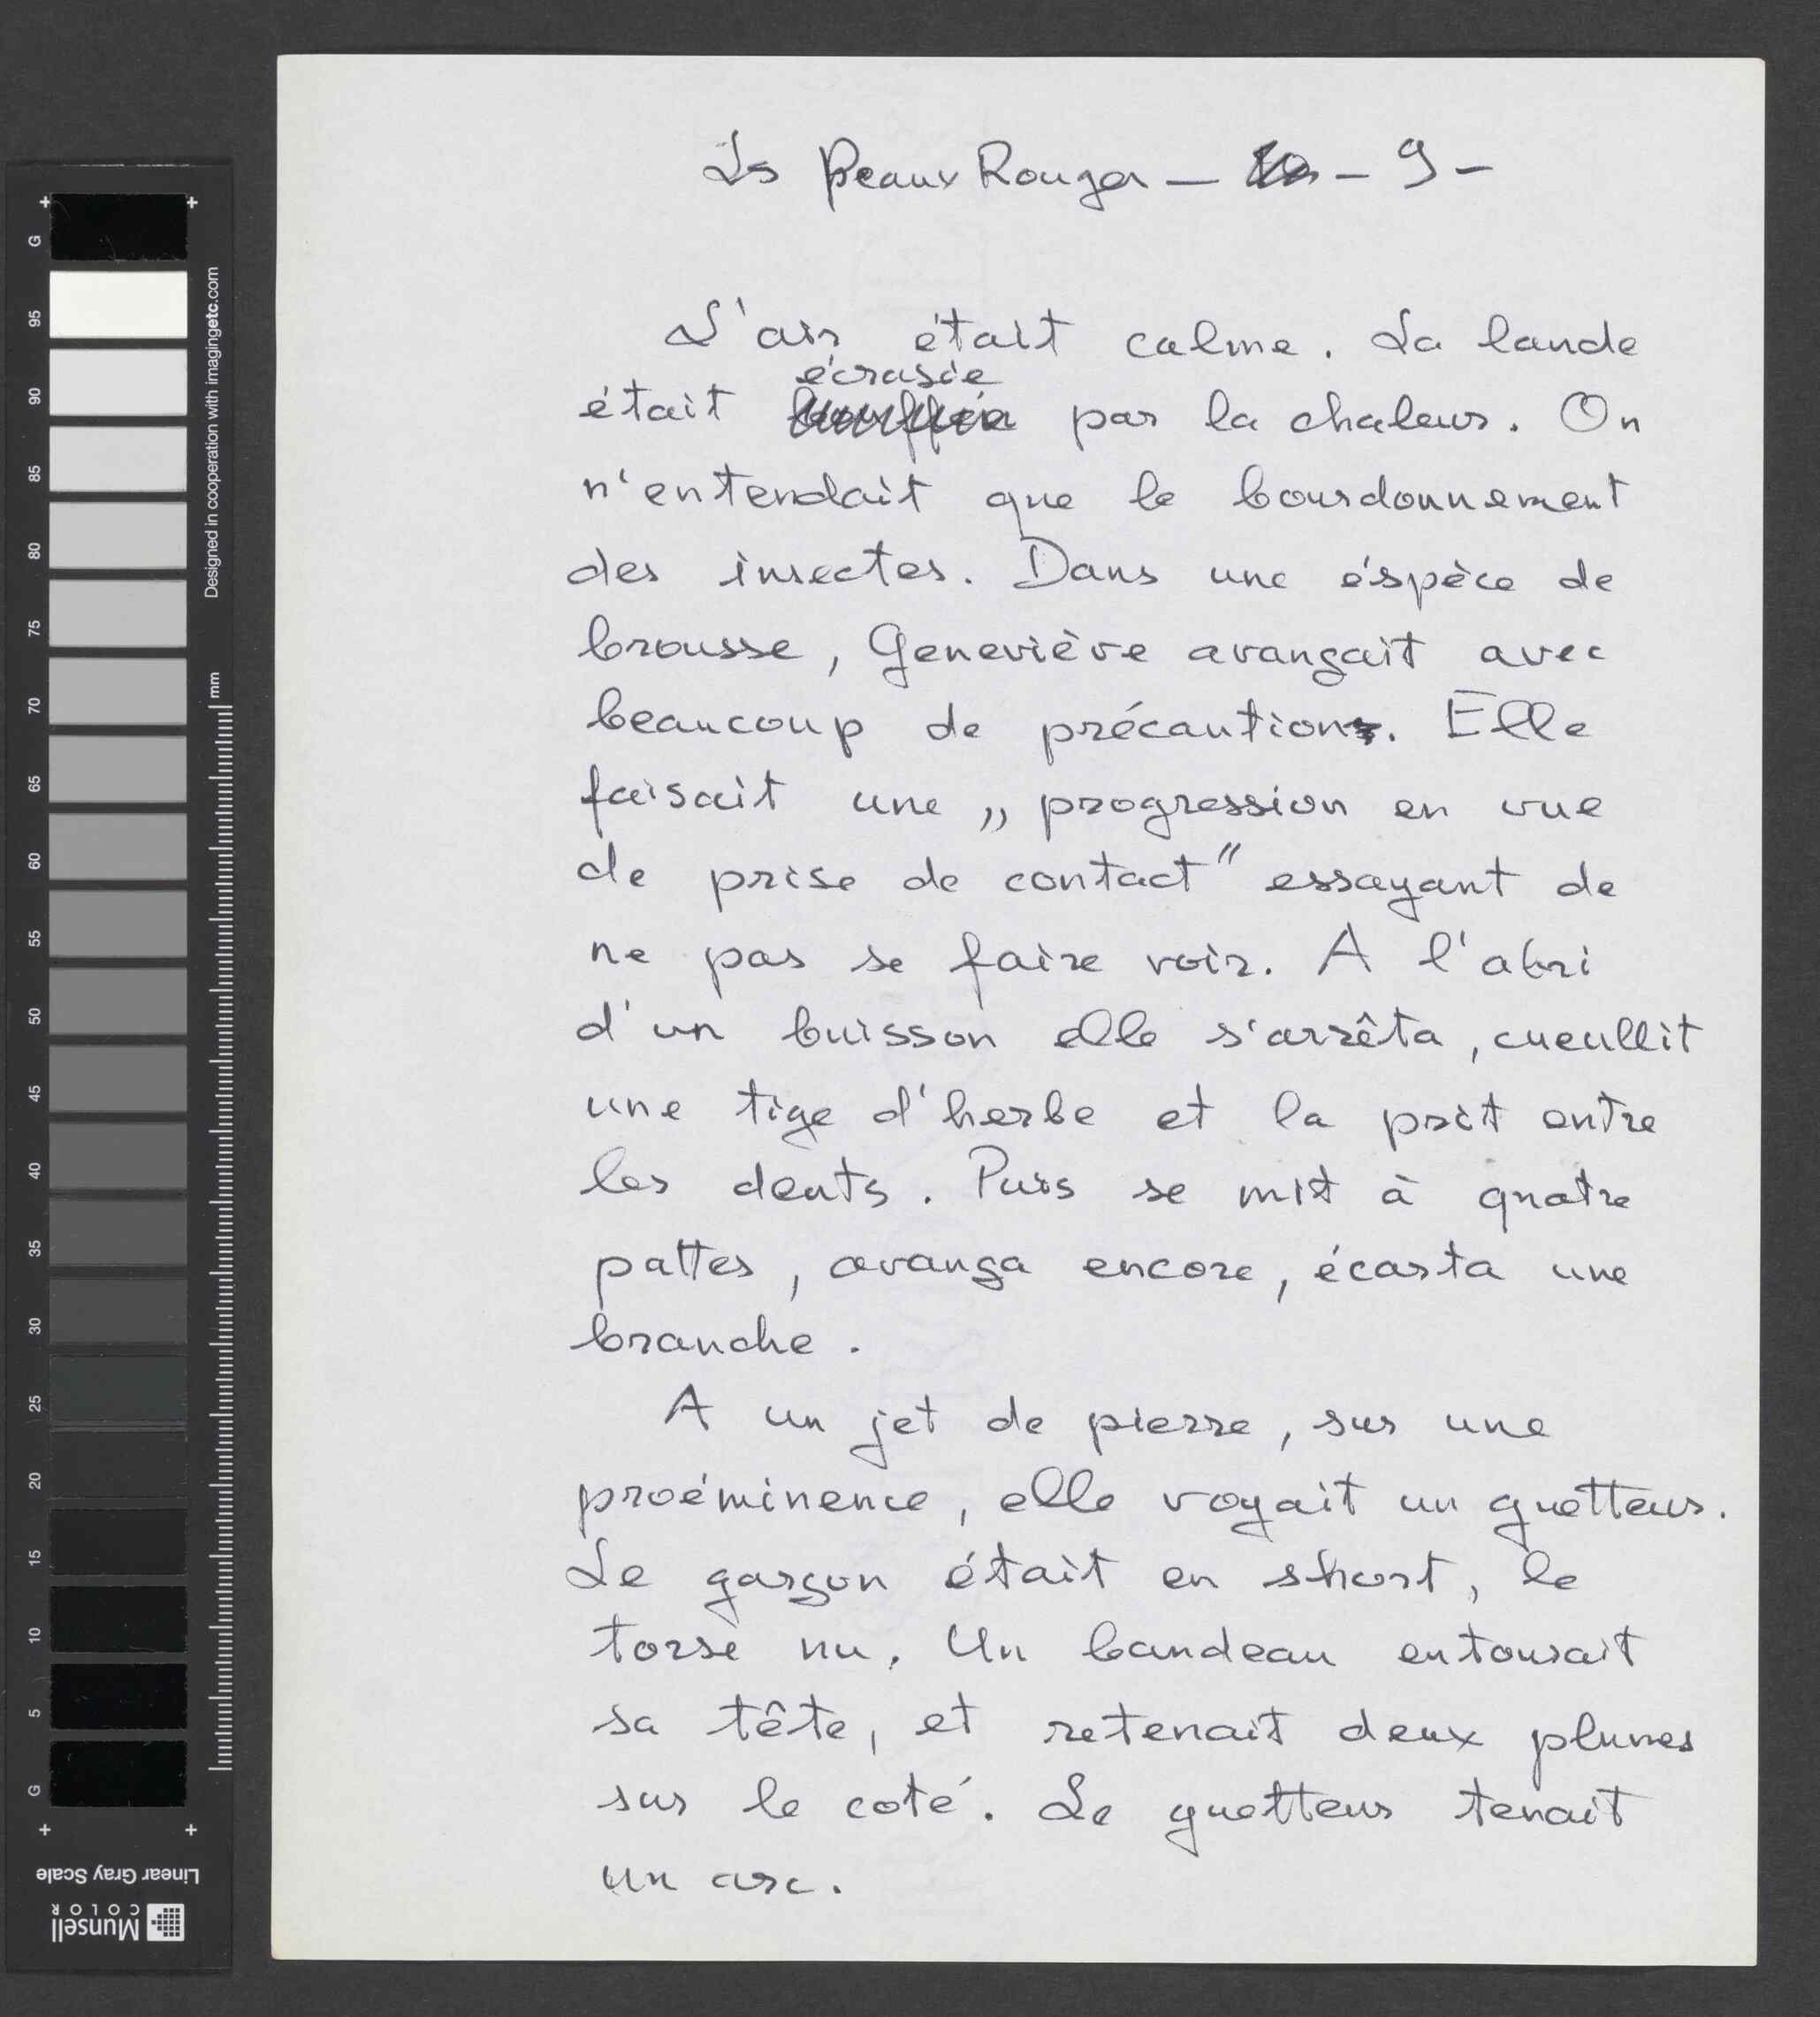 Les Peaux Rouges — — 9 —
L'air était calme. La lande
écrasée
était par la chaleur. On
n'entendait que le bourdonnement
des insectes. Dans une éspèce de
brousse, Geneviève avançait avec
beaucoup de précaution. Elle
faisait une „ progression en vue
de prise de contact" essayant de
ne pas se faire voir. A l'abri
d'un buisson elle s'arrêta, cueullit
une tige d'herbe et la prit entre
les dents. Puis se mit à quatre
pattes, avança encore, écarta une
branche.
A un jet de pierre, sur une
proéminence, elle voyait un guetteur.
Le garçon était en short, le
torse nu. Un bandeau entourait
sa tête, et retenait deux plumes
sur le coté. Le guetteur tenait
un arc.
G
95
90
85
80
75
70
65
60
55
50
45
40
35
30
25
20
15
10
5
G
Designed in cooperation with imagingetc.com
mm
Linear Gray Scale
Munsell
COLOR